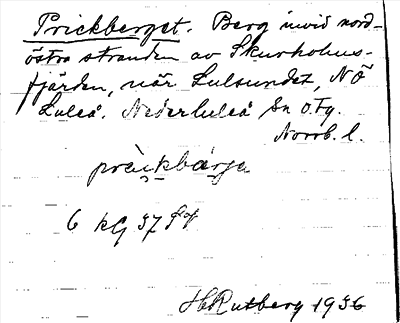 Prickberget. Berg invid nord-
östra stranden av Skurholms-
fjärden, när Lulsundet, NÖ
Luleå. Nederluleå Sn o. Tg.
Norrb. l.
prìkbærje
6 kg 37 fg
HRutberg 1936